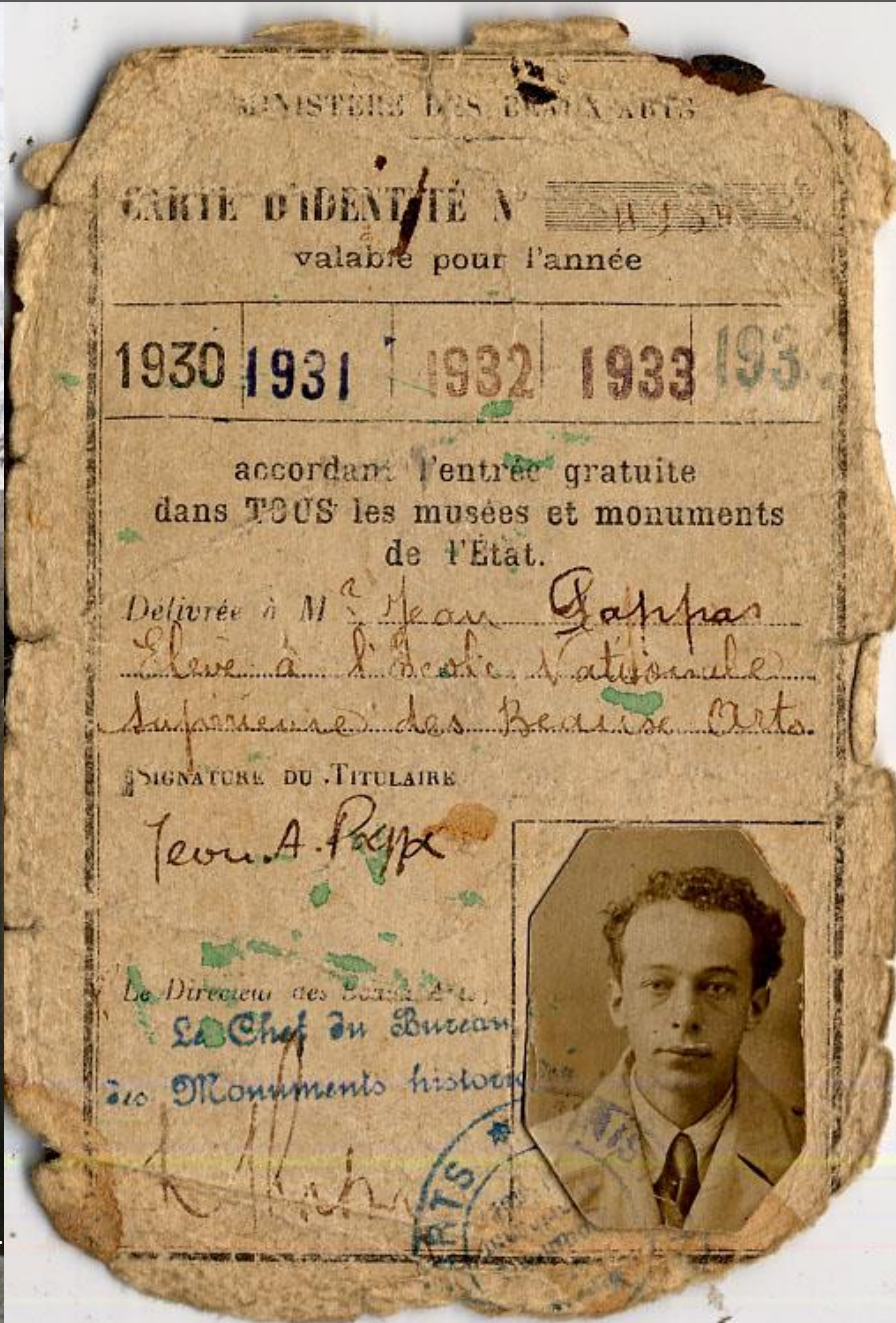 MINISTÈRE DES BEAUX-ARTS
CARTE D'IDENTITÉ N°
valable pour l'année
1930 1931 1932 1933 193
accordant l'entrée gratuite
dans TOUS les musées et monuments
de l'État.
Délivrée à Mr Jean Pappas
Élève à l'École Nationale
Supérieure des Beaux Arts.
SIGNATURE DU TITULAIRE
Jean A. Papp
Le Directeur des Beaux-Arts,
Le Chef du Bureau
des Monuments histor
ARTS